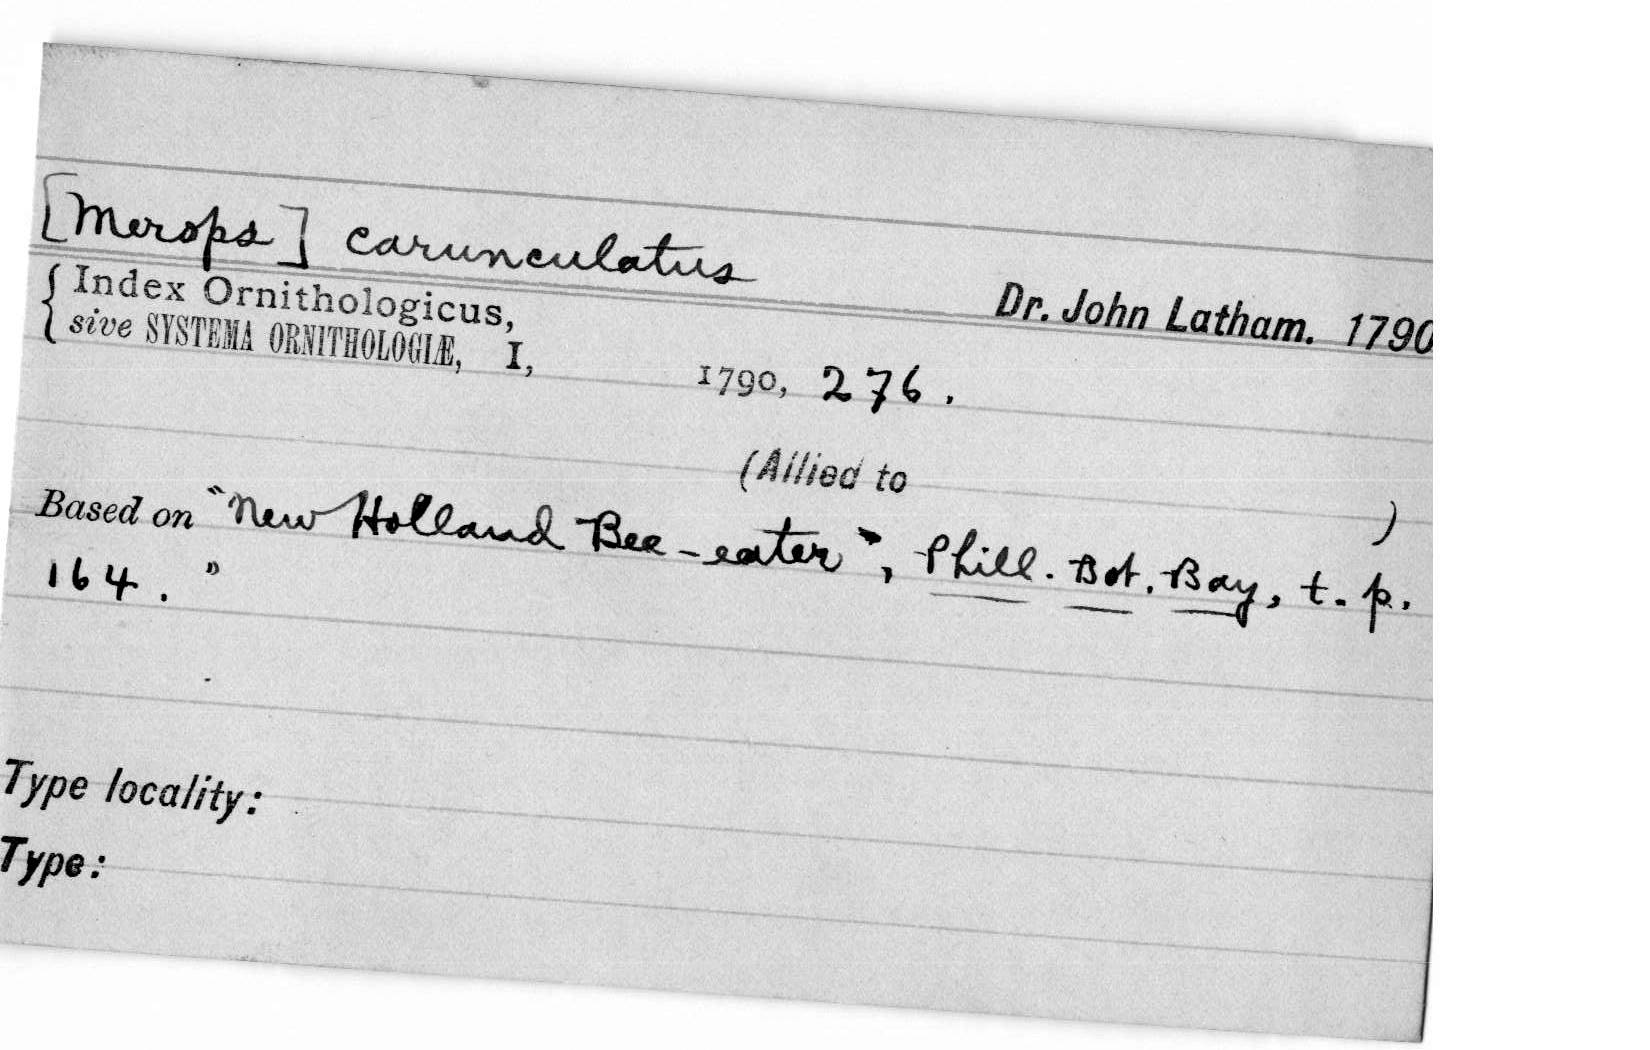 [Merops] carunculatus
Dr. John Latham. 1790
{ Index Ornithologicus,
sive SYSTEMA ORNITHOLOGIÆ, I, 1790, 276.
(Allied to )
Based on "New Holland Bee-eater", Phill. Bot. Bay, t. p.
164."
Type locality:
Type: